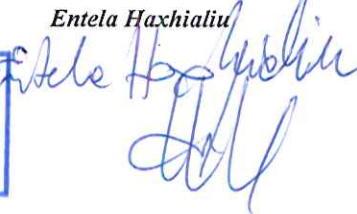 Entela Haxhialiu
Entela Haxhialiu